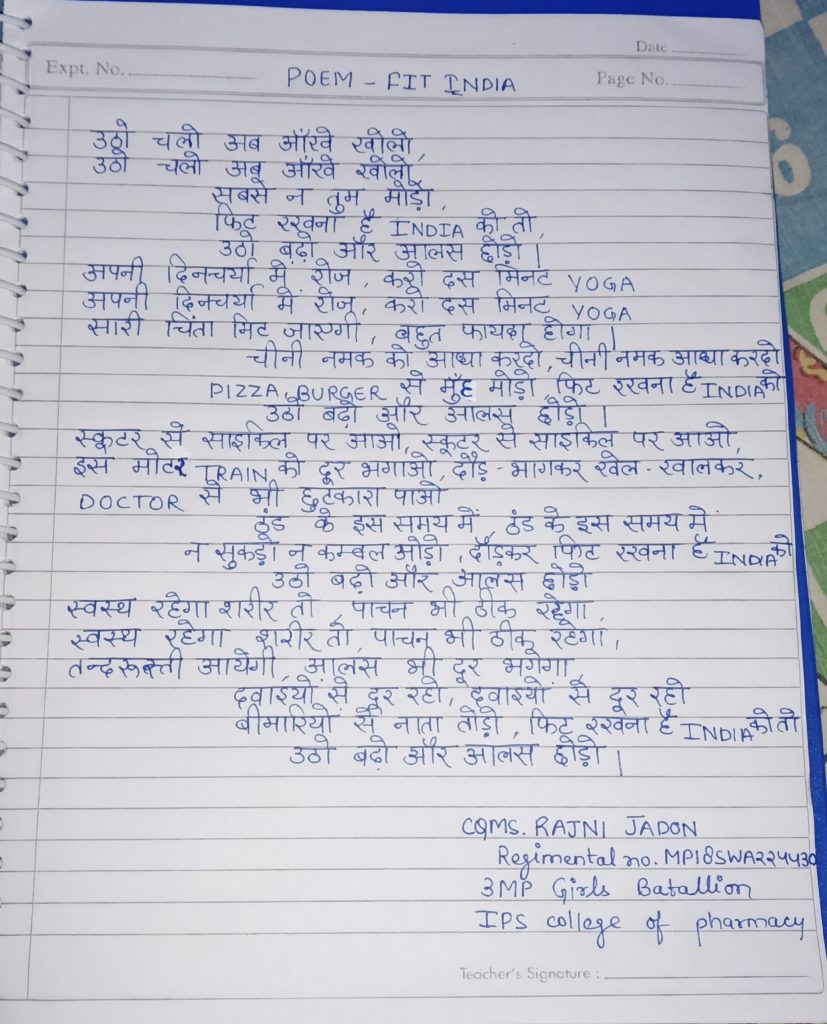 Date
Expt. No.
POEM - FIT INDIA
Page No.
उठो चलो अब आँखे खोलो,
उठो चलो अब आँखे खोलो,
सबसे न तुम मोड़ो,
फिट रखना है INDIA को तो,
उठो बढ़ो और आलस छोड़ो |
अपनी दिनचर्या में रोज, करो दस मिनट YOGA
अपनी दिनचर्या में रोज, करो दस मिनट YOGA
सारी चिंता मिट जाएगी, बहुत फायदा होगा |
चीनी नमक को आधा करदो, चीनी नमक आधा करदो
PIZZA, BURGER से मुँह मोड़ो, फिट रखना है INDIA को
उठो बढ़ो और आलस छोड़ो |
स्कूटर से साइकिल पर आओ, स्कूटर से साइकिल पर आओ,
इस मोटर TRAIN को दूर भगाओ, दौड़ - भागकर खेल - खालकर,
DOCTOR से भी छुटकारा पाओ
ठंड के इस समय में, ठंड के इस समय में
न सुकड़ो न कम्बल ओड़ो, दौड़कर फिट रखना है INDIA को
उठो बढ़ो और आलस छोड़ो
स्वस्थ रहेगा शरीर तो, पाचन भी ठीक रहेगा,
स्वस्थ रहेगा शरीर तो, पाचन भी ठीक रहेगा,
तन्दरुस्ती आयेगी, आलस भी दूर भगेगा,
दवाइयों से दूर रहो, दवाइयो से दूर रहो
बीमारियों से नाता तोड़ो, फिट रखना है INDIA को तो
उठो बढ़ो और आलस छोड़ो |
CQMS. RAJNI JADON
Regimental no. MP18SWA224430
3MP Girls Batallion
IPS college of pharmacy
Teacher's Signature :